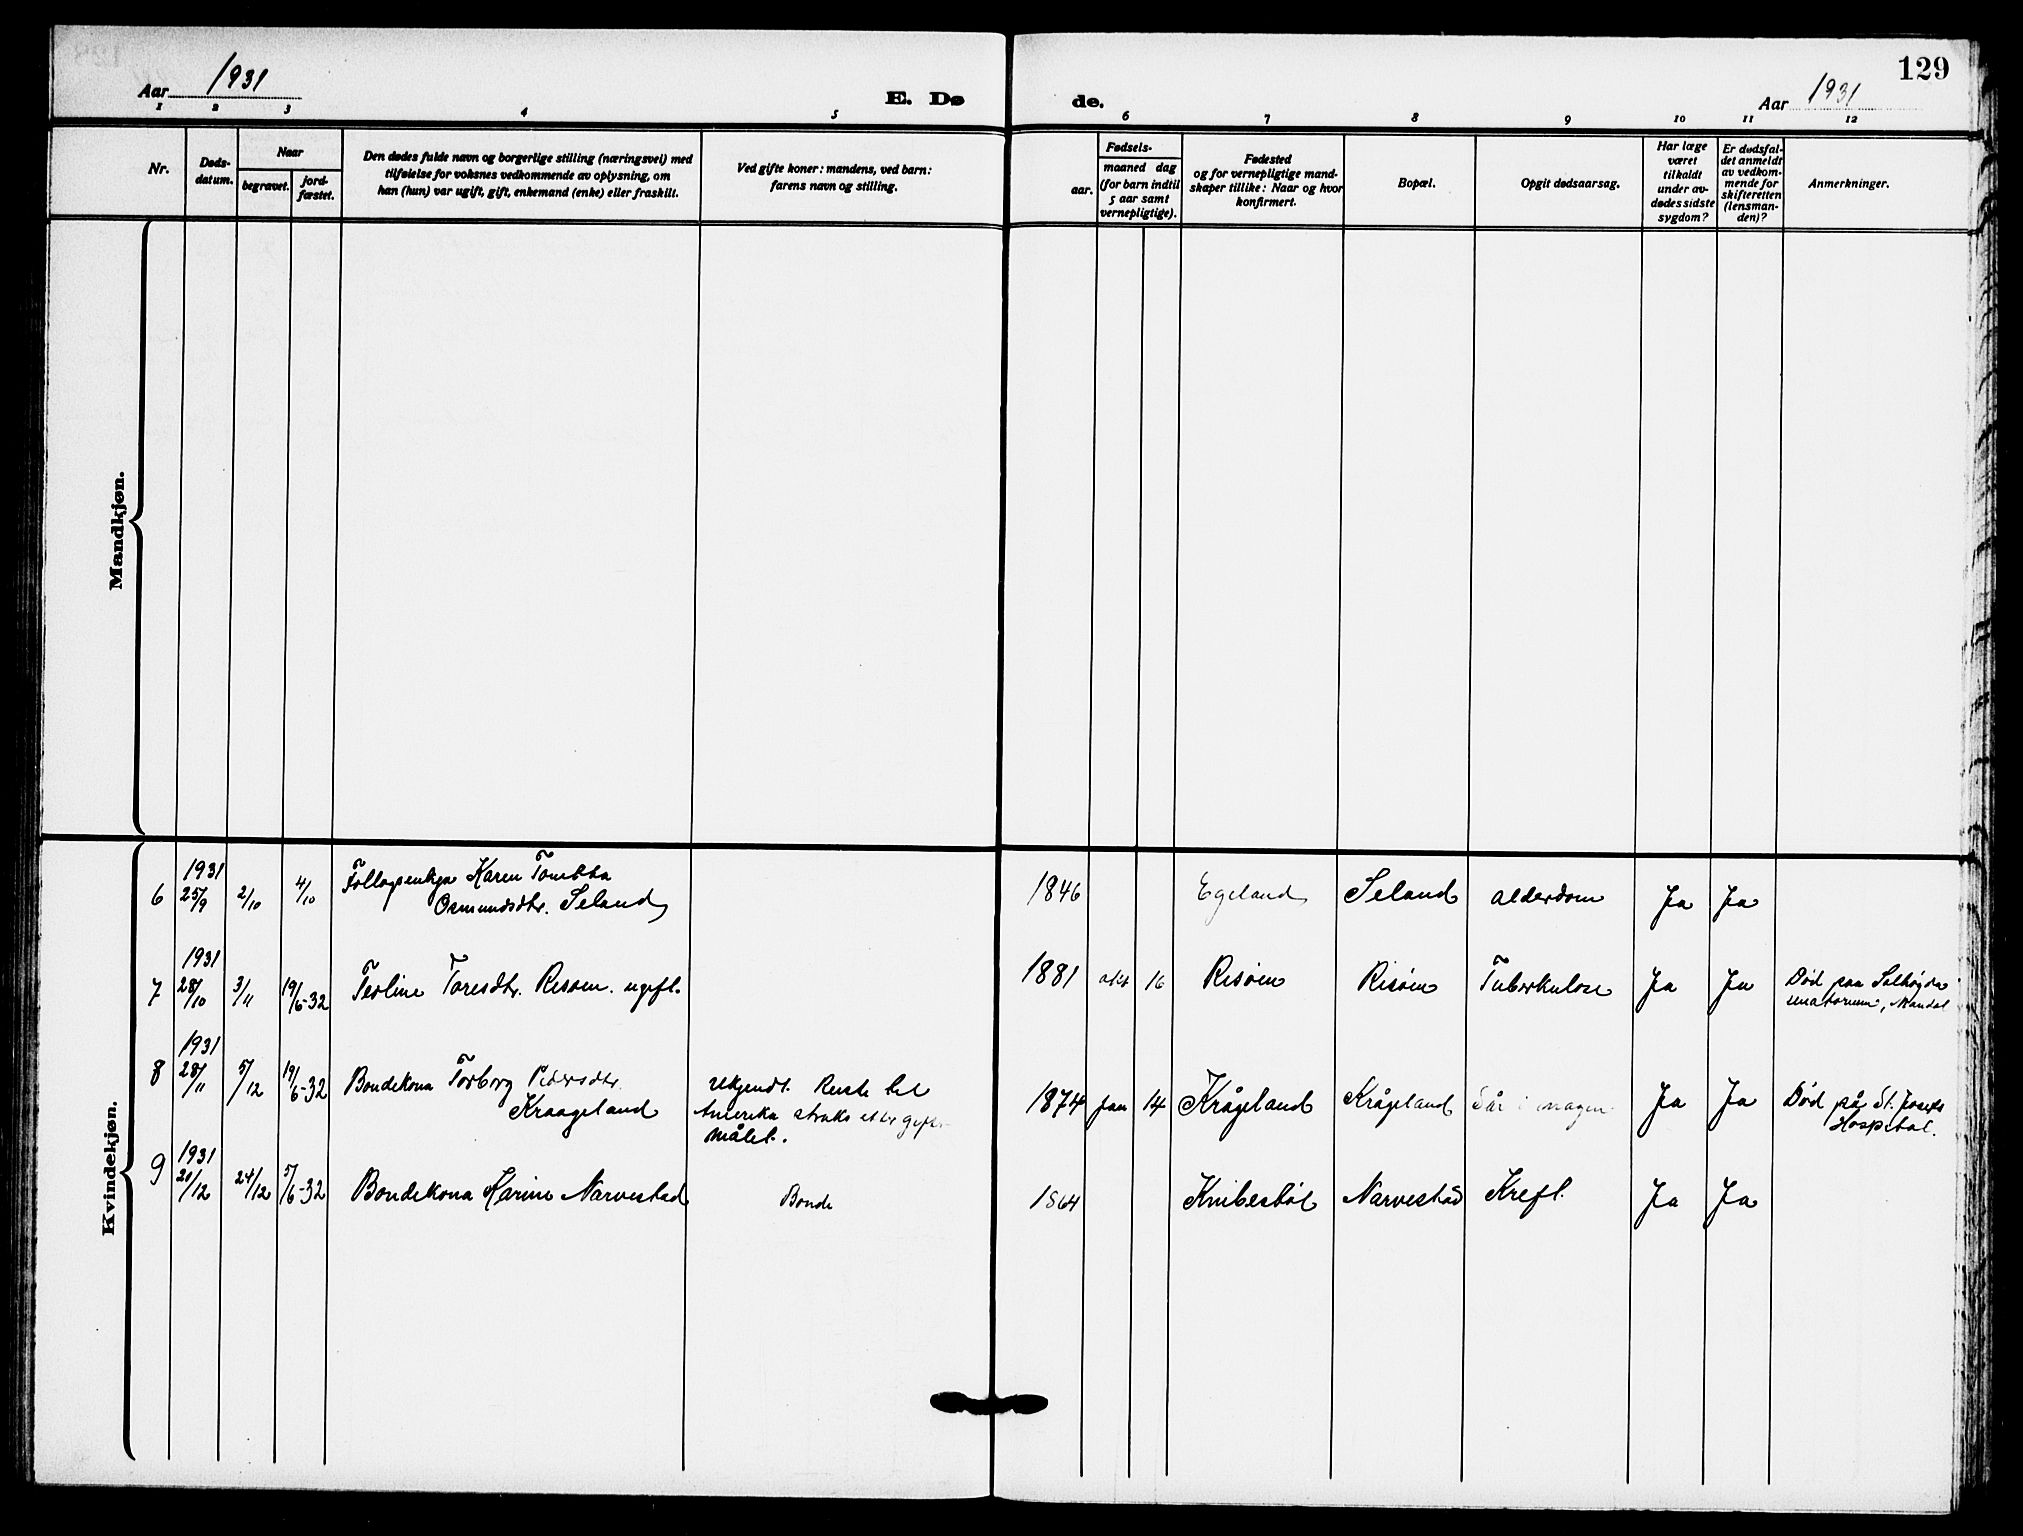 129
Aar 1931
E. Dø
de.
Aar 1931
1 2 3 4 5 6 7 8 9 10 11 12
Nr.
Døds-
datum.
Naar
begravet.
jord-
fæstet.
Den dødes fulde navn og borgerlige stilling (næringsvei) med
tilføielse for voksnes vedkommende av oplysning, om
han (hun) var ugift, gift, enkemand (enke) eller fraskilt.
Ved gifte koner: mandens, ved barn:
farens navn og stilling.
Fødsels-
aar.
maaned dag
(for barn indtil
5 aar samt
vernepligtige).
Fødested
og for vernepligtige mand-
skaper tillike: Naar og hvor
konfirmert.
Bopæl.
Opgit dødsaarsag.
Har læge
været
tilkaldt
under av-
dødes sidste
sygdom?
Er dødsfal-
det anmeldt
av vedkom-
mende for
skifteretten
(lensman-
den)?
Anmerkninger.
Mandkjøn.
Kvindekjøn.
1931
6 25/9 2/10 4/10 Karen
Osmundsdtr. Seland 1846 Egeland Seland Alderdom Ja Ja
1931
7 28/10 3/11 19/6-32 Teoline Toresdtr. Risøen. ugift. 1881 okt 16 Risøen Risøen Tuberkulose Ja Ja Død paa
Mandal
1931
8 28/11 5/12 19/6-32 Bondekona Torborg Pedersdtr.
Kraageland
ukjendt. Reiste til
Amerika straks etter gifter-
målet.
1874 Jan 14 Krågeland Krågeland Sår i magen Ja Ja Død på St. Josefs
Hospital.
1931
9 20/12 24/12 5/6-32 Bondekona Karine Narvestad Bonde 1864 Knibestøl Narvestad Kreft. Ja Ja